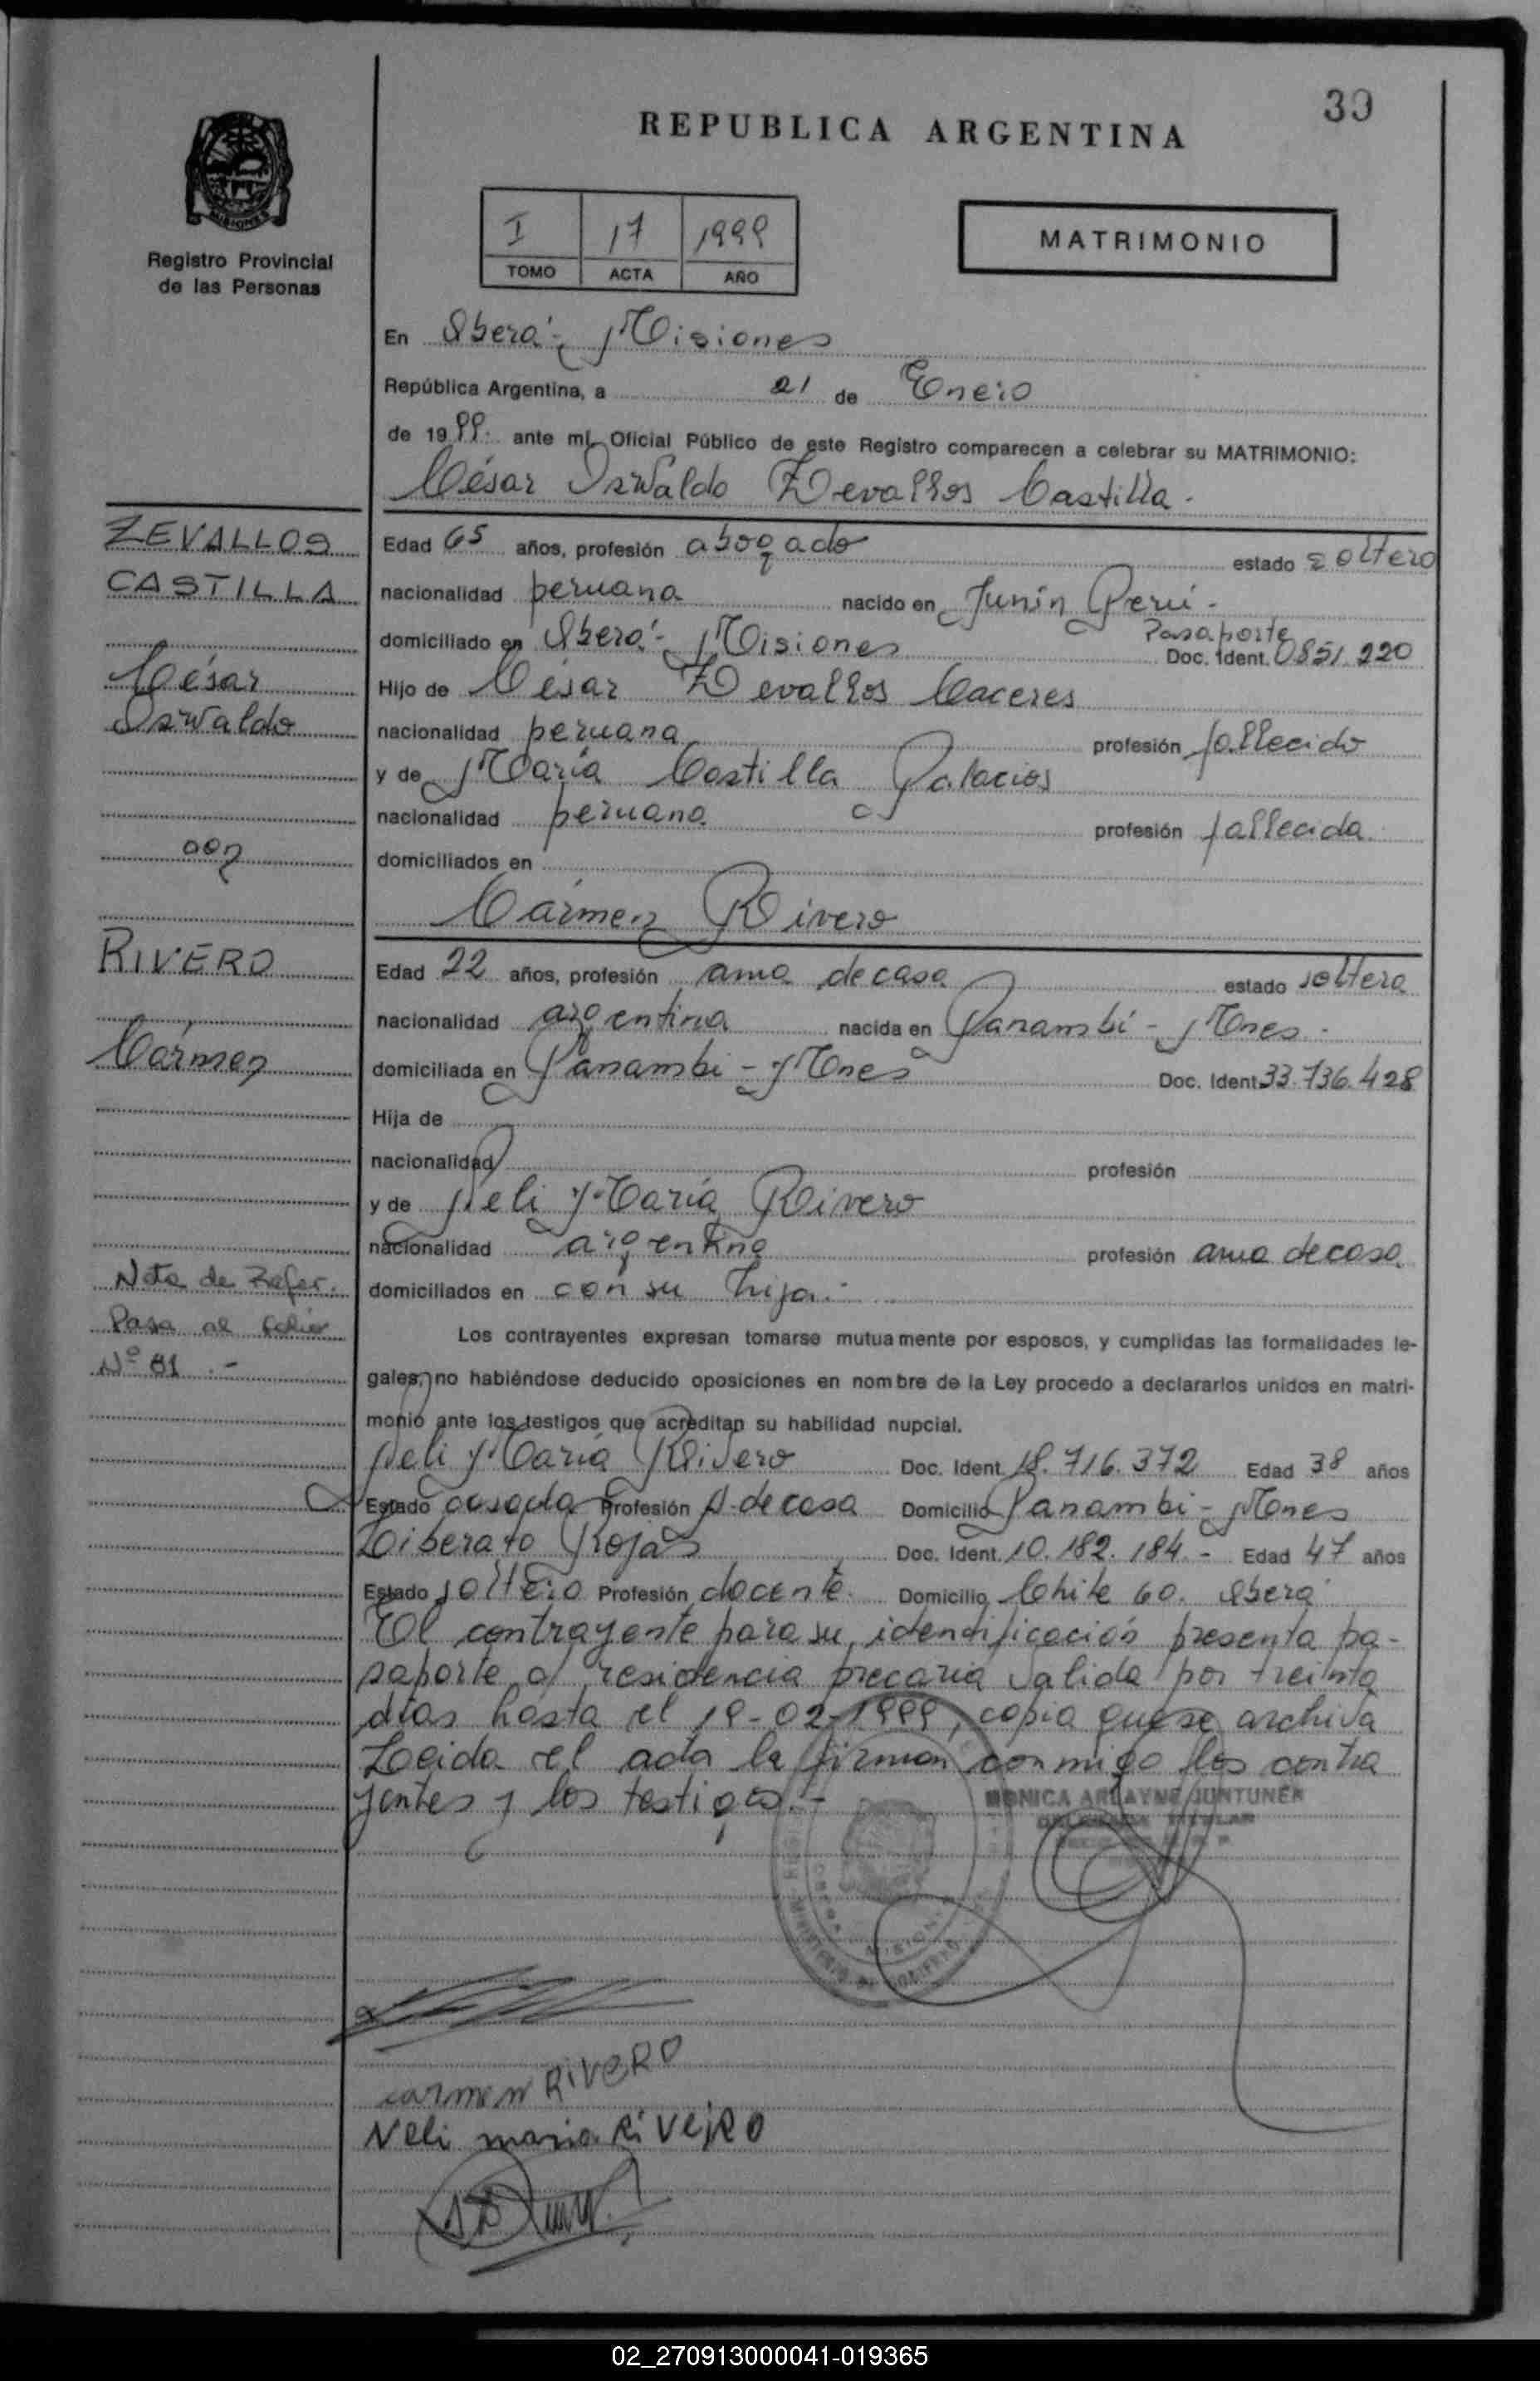 39
REPUBLICA ARGENTINA
I 17 1999
TOMO ACTA AÑO
MATRIMONIO
MISIONES
Registro Provincial
de las Personas
En Oberá - Misiones
República Argentina, a 21 de Enero
de 1999. ante mí, Oficial Público de este Registro comparecen a celebrar su MATRIMONIO:
César Oswaldo Zevallos Castilla.
ZEVALLOS
CASTILLA
César
Oswaldo
con
Edad 65 años, profesión abogado estado soltero
nacionalidad peruana nacido en Junín Perú -
domiciliado en Oberá - Misiones Pasaporte Doc. Ident. 0851220
Hijo de César Zevallos Caceres
nacionalidad peruana profesión fallecido
y de María Castilla Palacios
nacionalidad peruana profesión fallecida
domiciliados en
Cármen Rivero
RIVERO
Cármen
Edad 22 años, profesión ama de casa estado soltera
nacionalidad argentina nacida en Panambí - Mnes.
domiciliada en Panambi - Mnes Doc. Ident. 33.736.428
Hija de
nacionalidad profesión
y de Neli María Rivero
nacionalidad argentina profesión ama de casa.
domiciliados en con su hija.-
Nota de Refer.
Pasa al folio
Nº 81 .-
Los contrayentes expresan tomarse mutuamente por esposos, y cumplidas las formalidades le-
gales, no habiéndose deducido oposiciones en nombre de la Ley procedo a declararlos unidos en matri-
monio ante los testigos que acreditan su habilidad nupcial.
Neli María Rivero Doc. Ident. 18.716.372 Edad 38 años
Estado casada Profesión A. de casa Domicilio Panambi - Mnes
Liberato Rojas Doc. Ident. 10.182.184 - Edad 47 años
Estado soltero Profesión docente. Domicilio Chile 60. Oberá
El contrayente para su identificación presenta pa-
saporte y residencia precaria valida por treinta
días hasta el 19-02-1999, copia que se archiva
Leida el acta la firman conmigo los contra
yentes y los testigos.-
MONICA ARLAYNE JUNTUNEN
DELEGADA TITULAR
carmen RIVERO
Neli maria RiVeRO
02_270913000041-019365